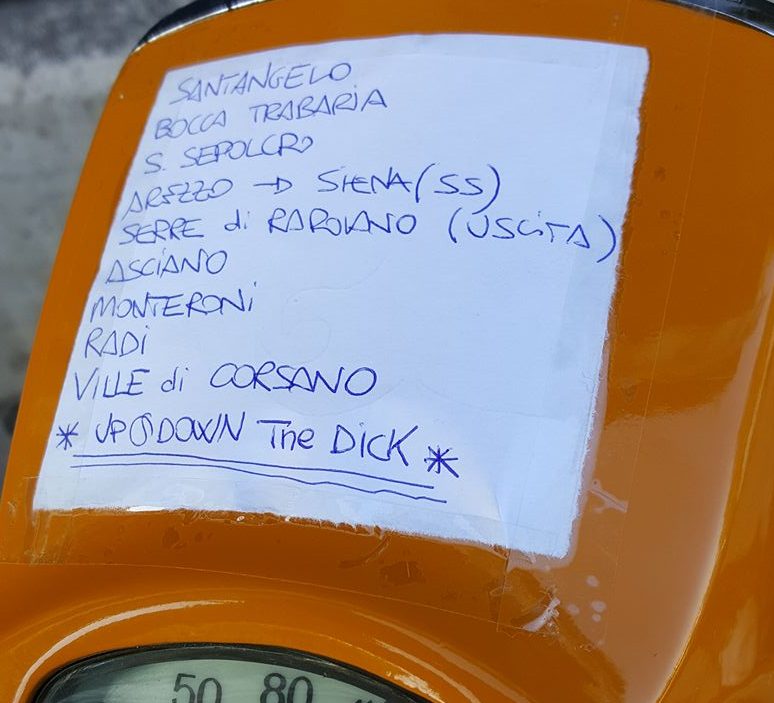 SANTANGELO
BOCCA TRABARIA
S. SEPOLCRO
AREZZO → SIENA (SS)
SERRE di RAPOLANO (USCITA)
ASCIANO
MONTERONi
RADi
VILLE di CORSANO
* UP DOWN The DiCK *
50 80